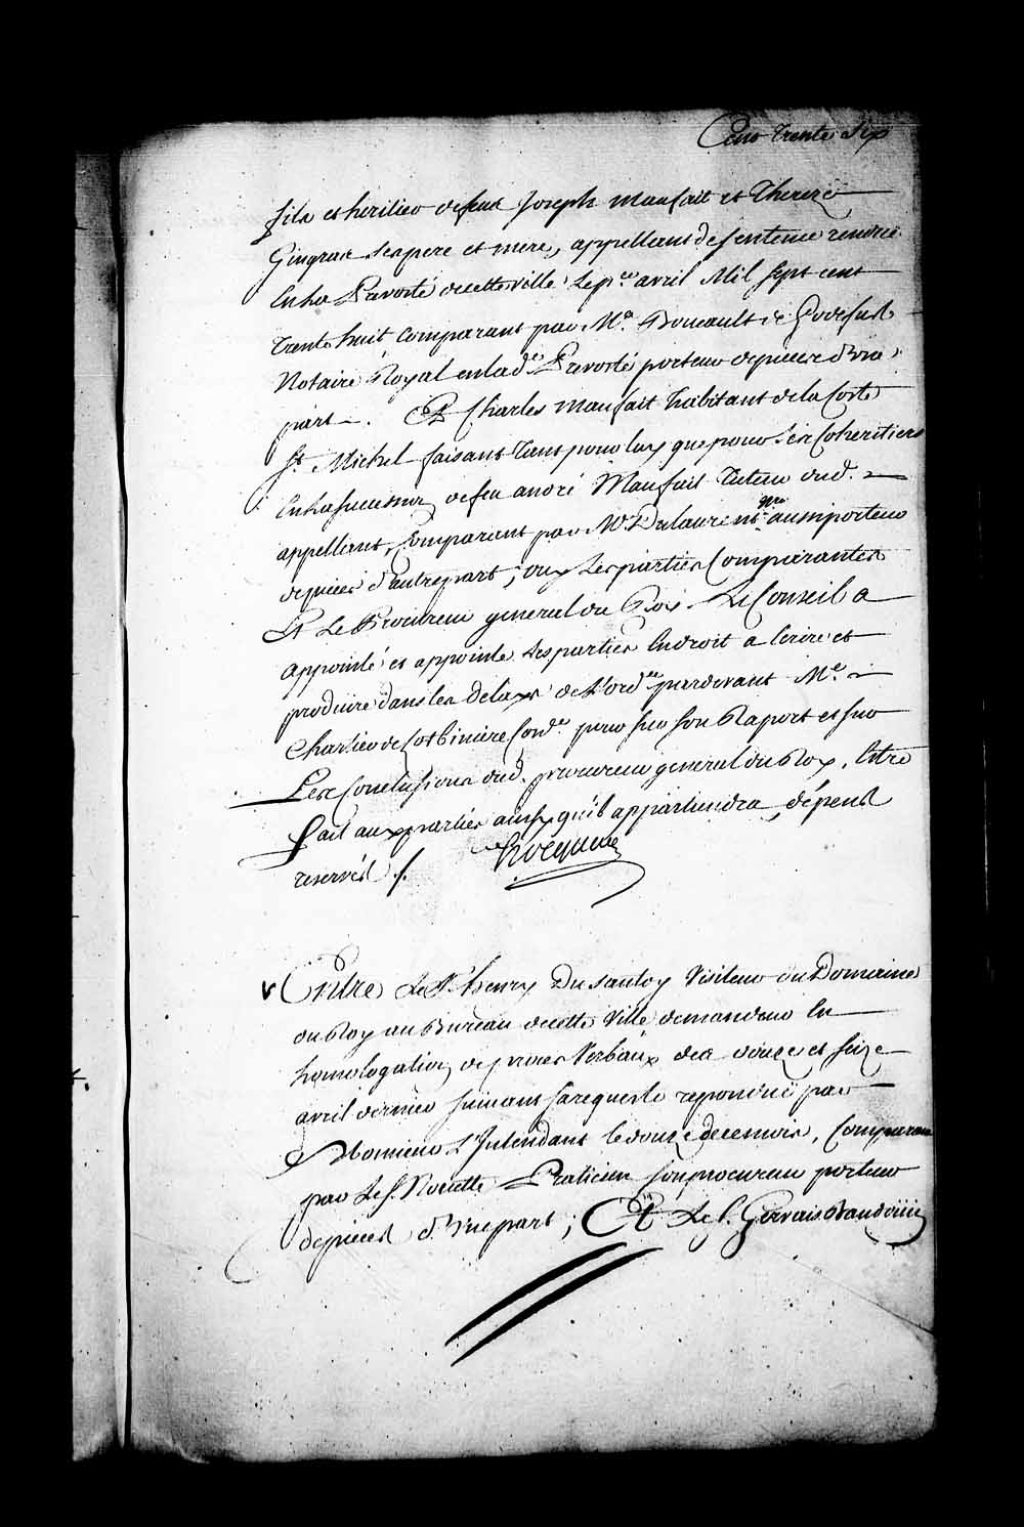 Cent trente Six
fils et heritier defeux Joseph Maufait et Thereze
Gingras ses pere et mere, appellant de sentence rendüe
En la Prevosté decette ville Le pr.er avril Mil sept cent
trente huit comparant par M.e Boucault de Godefus
Notaire Royal en lad.e Prevosté porteur depieces d'Une
part. Et Charles Maufait habitant dela Coste
St. Michel faisant tant pour luy que pour ses Coheritiers
En la succession defeu andré Maufait Tuteur dud.
appellant, Comparant par M.e Dulaurent N.re aussi porteur
depieces d'autre part; ouy Les parties Comparantes
Et Le Procureur general du Roi. Le Conseil a
appointé et appointe Les parties En droit a Ecrire et
produire dans les delays de l'ord.ce pardevant M.e
Chartier de Lotbiniere Con.er pour sur son Raport et sur
Les Conclusions dud. procureur general du Roy, Estre
fait aux parties ainsy qu'il appartiendra, dépens
reservés ./.
Hocquart
Entre Le S. henry Du sautoy Visiteur du Domaine
du Roy au Bureau decette Ville demandeur En
homologation de procès Verbaux des douze et seize
avril dernier suivant sa requeste repondüe par
Monsieur L'Intendant le douze de ce mois, Comparant
par Le S. Nouette Praticien son procureur porteur
depieces d'Une part; Et Le S. Gervais Baudoüin